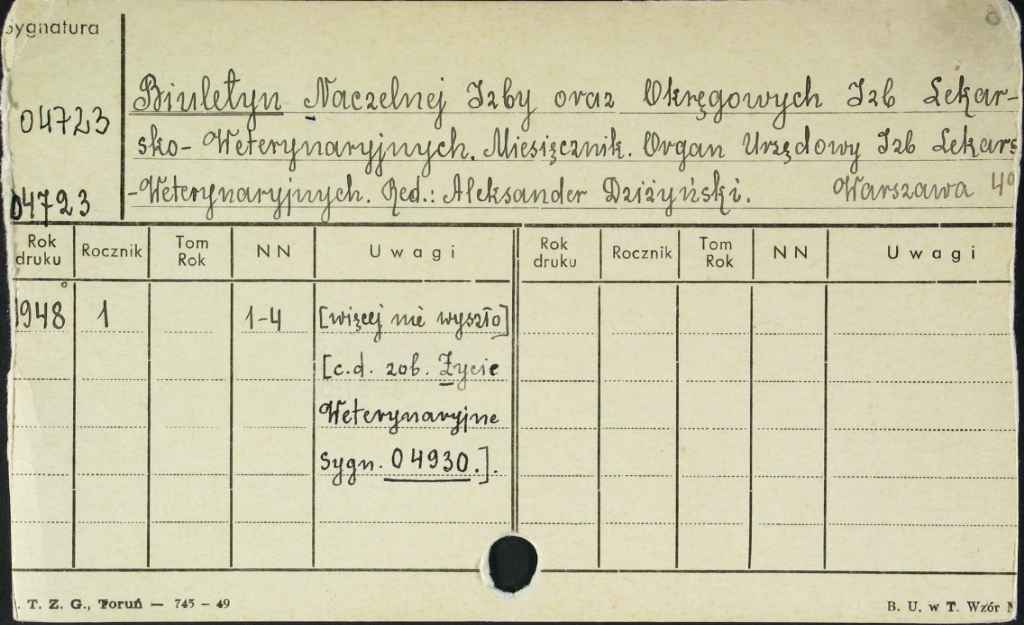 Sygnatura
04723
04723
Biuletyn Naczelnej Izby oraz Okręgowych Izb Lekar-
sko-Weterynaryjnych. Miesięcznik. Organ Urzędowy Izb Lekars
-Weterynaryjnych. Red.: Aleksander Dziżyński. Warszawa 4°
Rok druku Rocznik Tom Rok NN Uwagi Rok druku Rocznik Tom Rok NN Uwagi
1948 1 1-4 [więcej nie wyszło]
[c.d. zob. Życie
Weterynaryjne
Sygn. 04930.].
. T. Z. G., Toruń — 745 - 49 B. U. w T. Wzór